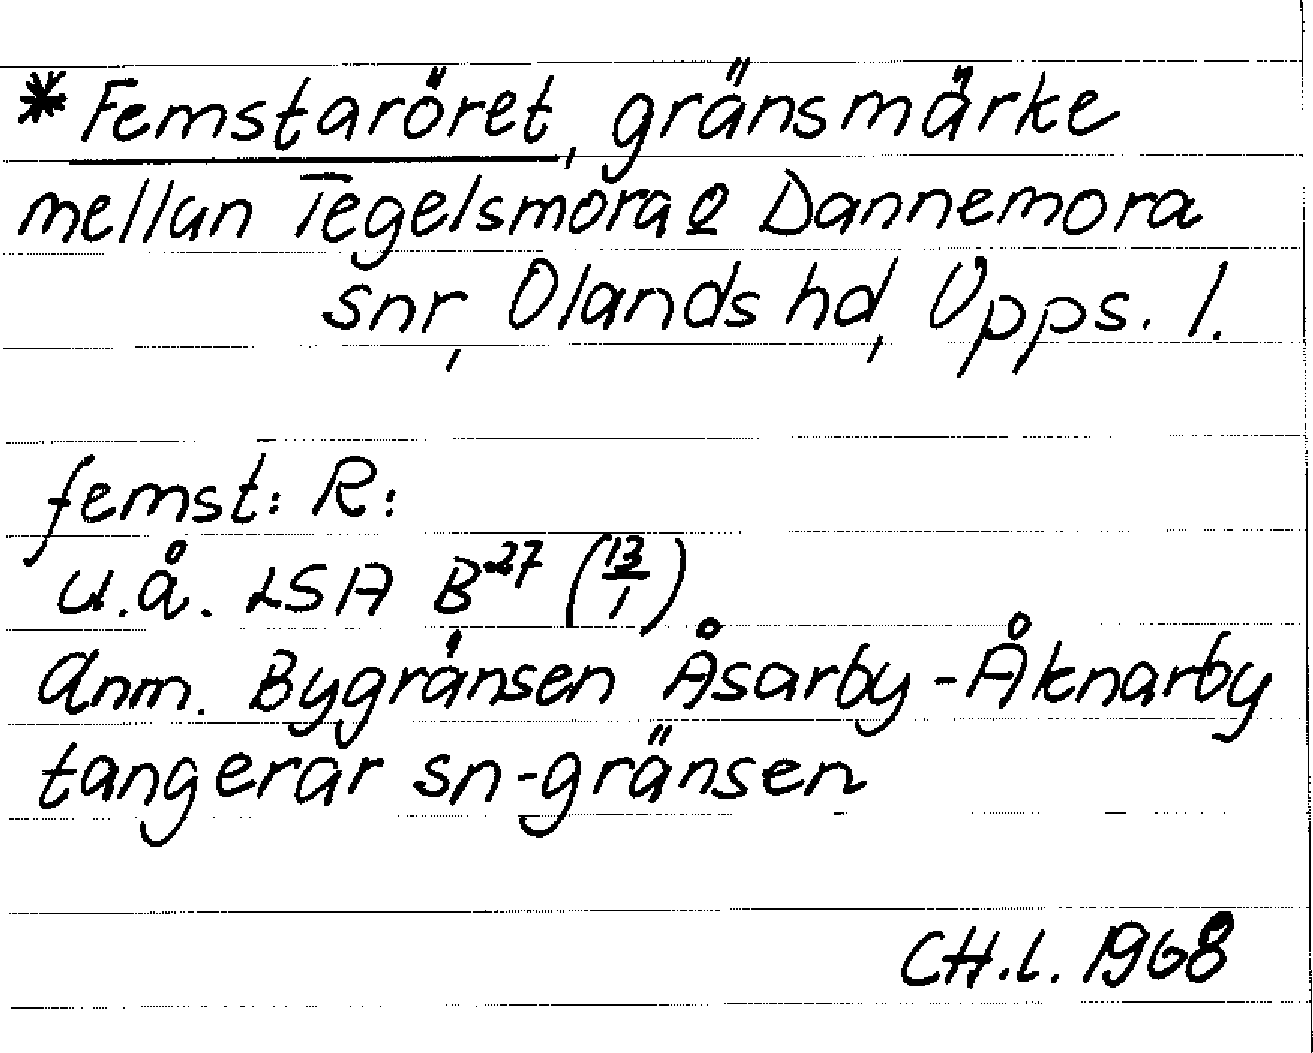 * Femstaröret, gränsmärke
mellan Tegelsmora o Dannemora
snr, Olands hd, Upps. l.
femst: R:
u.å. LSA B27 (13/1)
Anm. Bygränsen Åsarby-Åknarby
tangerar sn-gränsen
CH.L. 1968